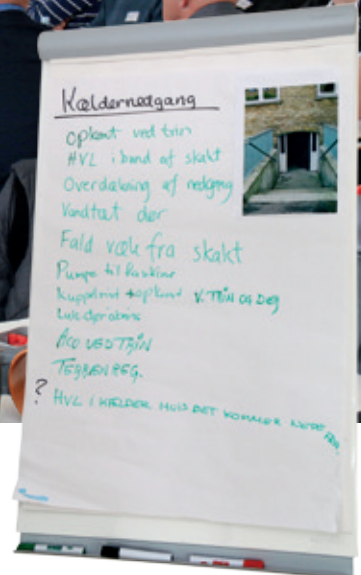 Kældernedgang
opkant ved trin
HVL i bund af skakt
Overdækning af nedgang
Vandtæt dør
Fald væk fra skakt
Pumpe til
opkant v. TRIN OG DØR
ACO VED TRIN
TERRÆNREG.
? HVL I KÆLDER HVIS DET KOMMER NEDE FRA